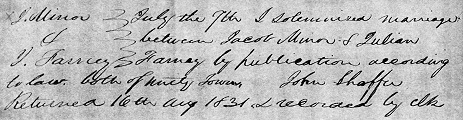 J. Minor } July the 7th I solemnised marriage
& } between Jacob Minor & Julian
Y. Farney } Farnay by publication according
to law. both of ninety Towns John Shaffer
Returned 16th Aug 1831 & recorded by clk